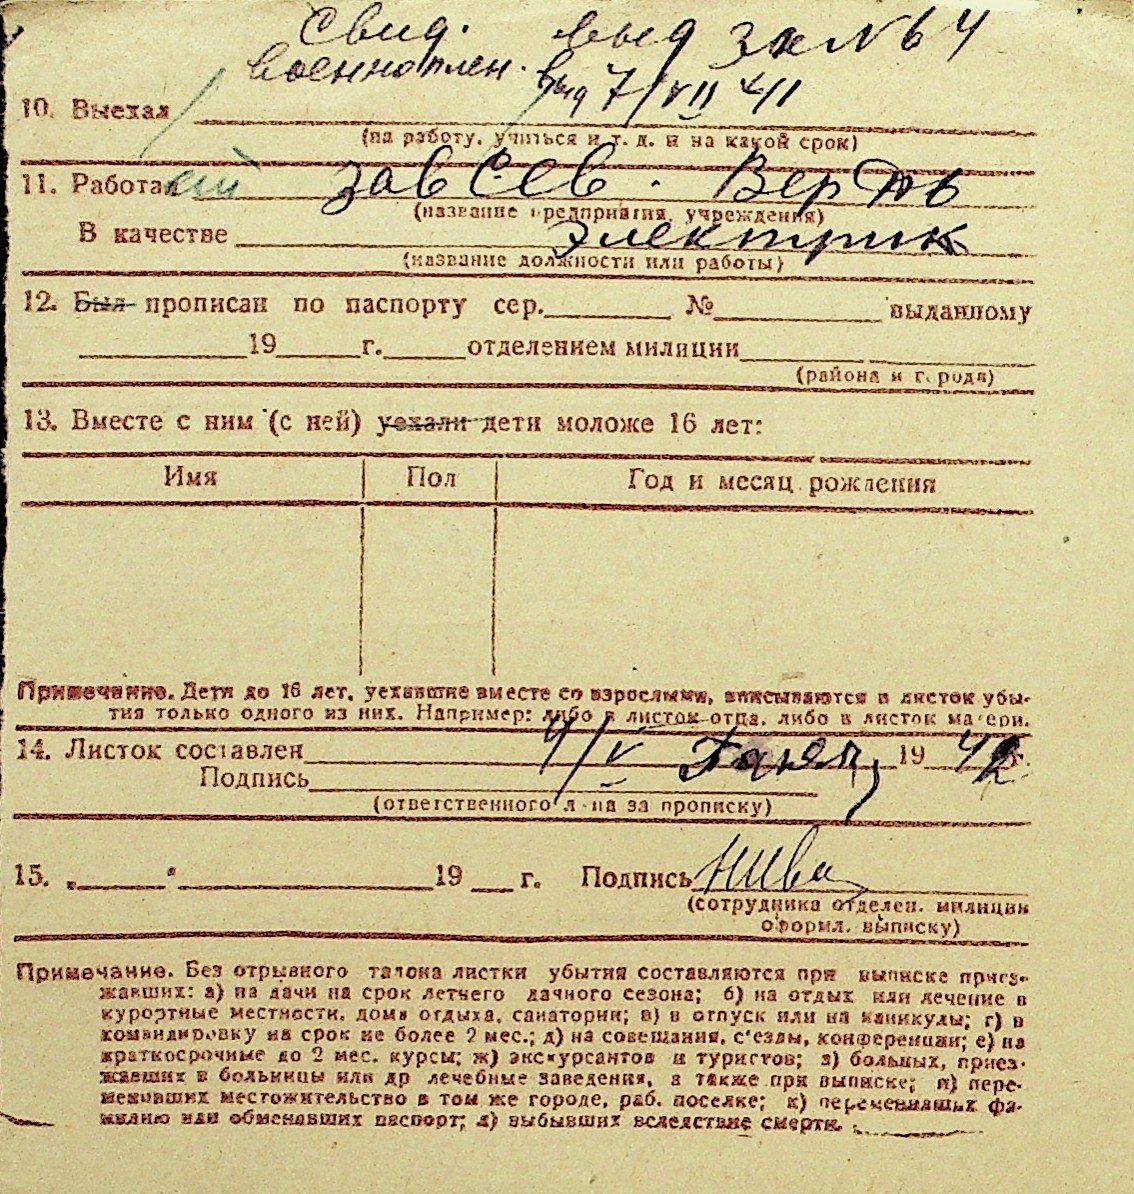 Свид. выд за № 64
военноплен. выд 7/VII 41
10. Выехал
(на работу, учиться и т. д. и на какой срок)
11. Работал зав Сев. Верфь
(название предприятия, учреждения)
В качестве электрик
(название должности или работы)
12. Был прописан по паспорту сер. № выданному
19 г. отделением милиции
(района и города)
13. Вместе с ним (с ней) уехали дети моложе 16 лет:
Имя Пол Год и месяц рождения
Примечание. Дети до 16 лет, уехавшие вместе со взрослыми, вписываются в листок убы-
тия только одного из них. Например: либо в листок отца, либо в листок матери.
14. Листок составлен 4/V 19 42
Подпись
(ответственного л-ца за прописку)
15. „ “ 19 г. Подпись
(сотрудника отделен. милиции
оформл. выписку)
Примечание. Без отрывного талона листки убытия составляются при выписке приез-
жавших: а) на дачи на срок летнего дачного сезона; б) на отдых или лечение в
курортные местности, дома отдыха, санатории; в) в отпуск или на каникулы; г) в
командировку на срок не более 2 мес.; д) на совещания, с'езды, конференции; е) на
краткосрочные до 2 мес. курсы; ж) экскурсантов и туристов; з) больных, приез-
жавших в больницы или др лечебные заведения, а также при выписке; и) пере-
менивших местожительство в том же городе, раб. поселке; к) переменивших фа-
милию или обменявших паспорт; л) выбывших вследствие смерти.